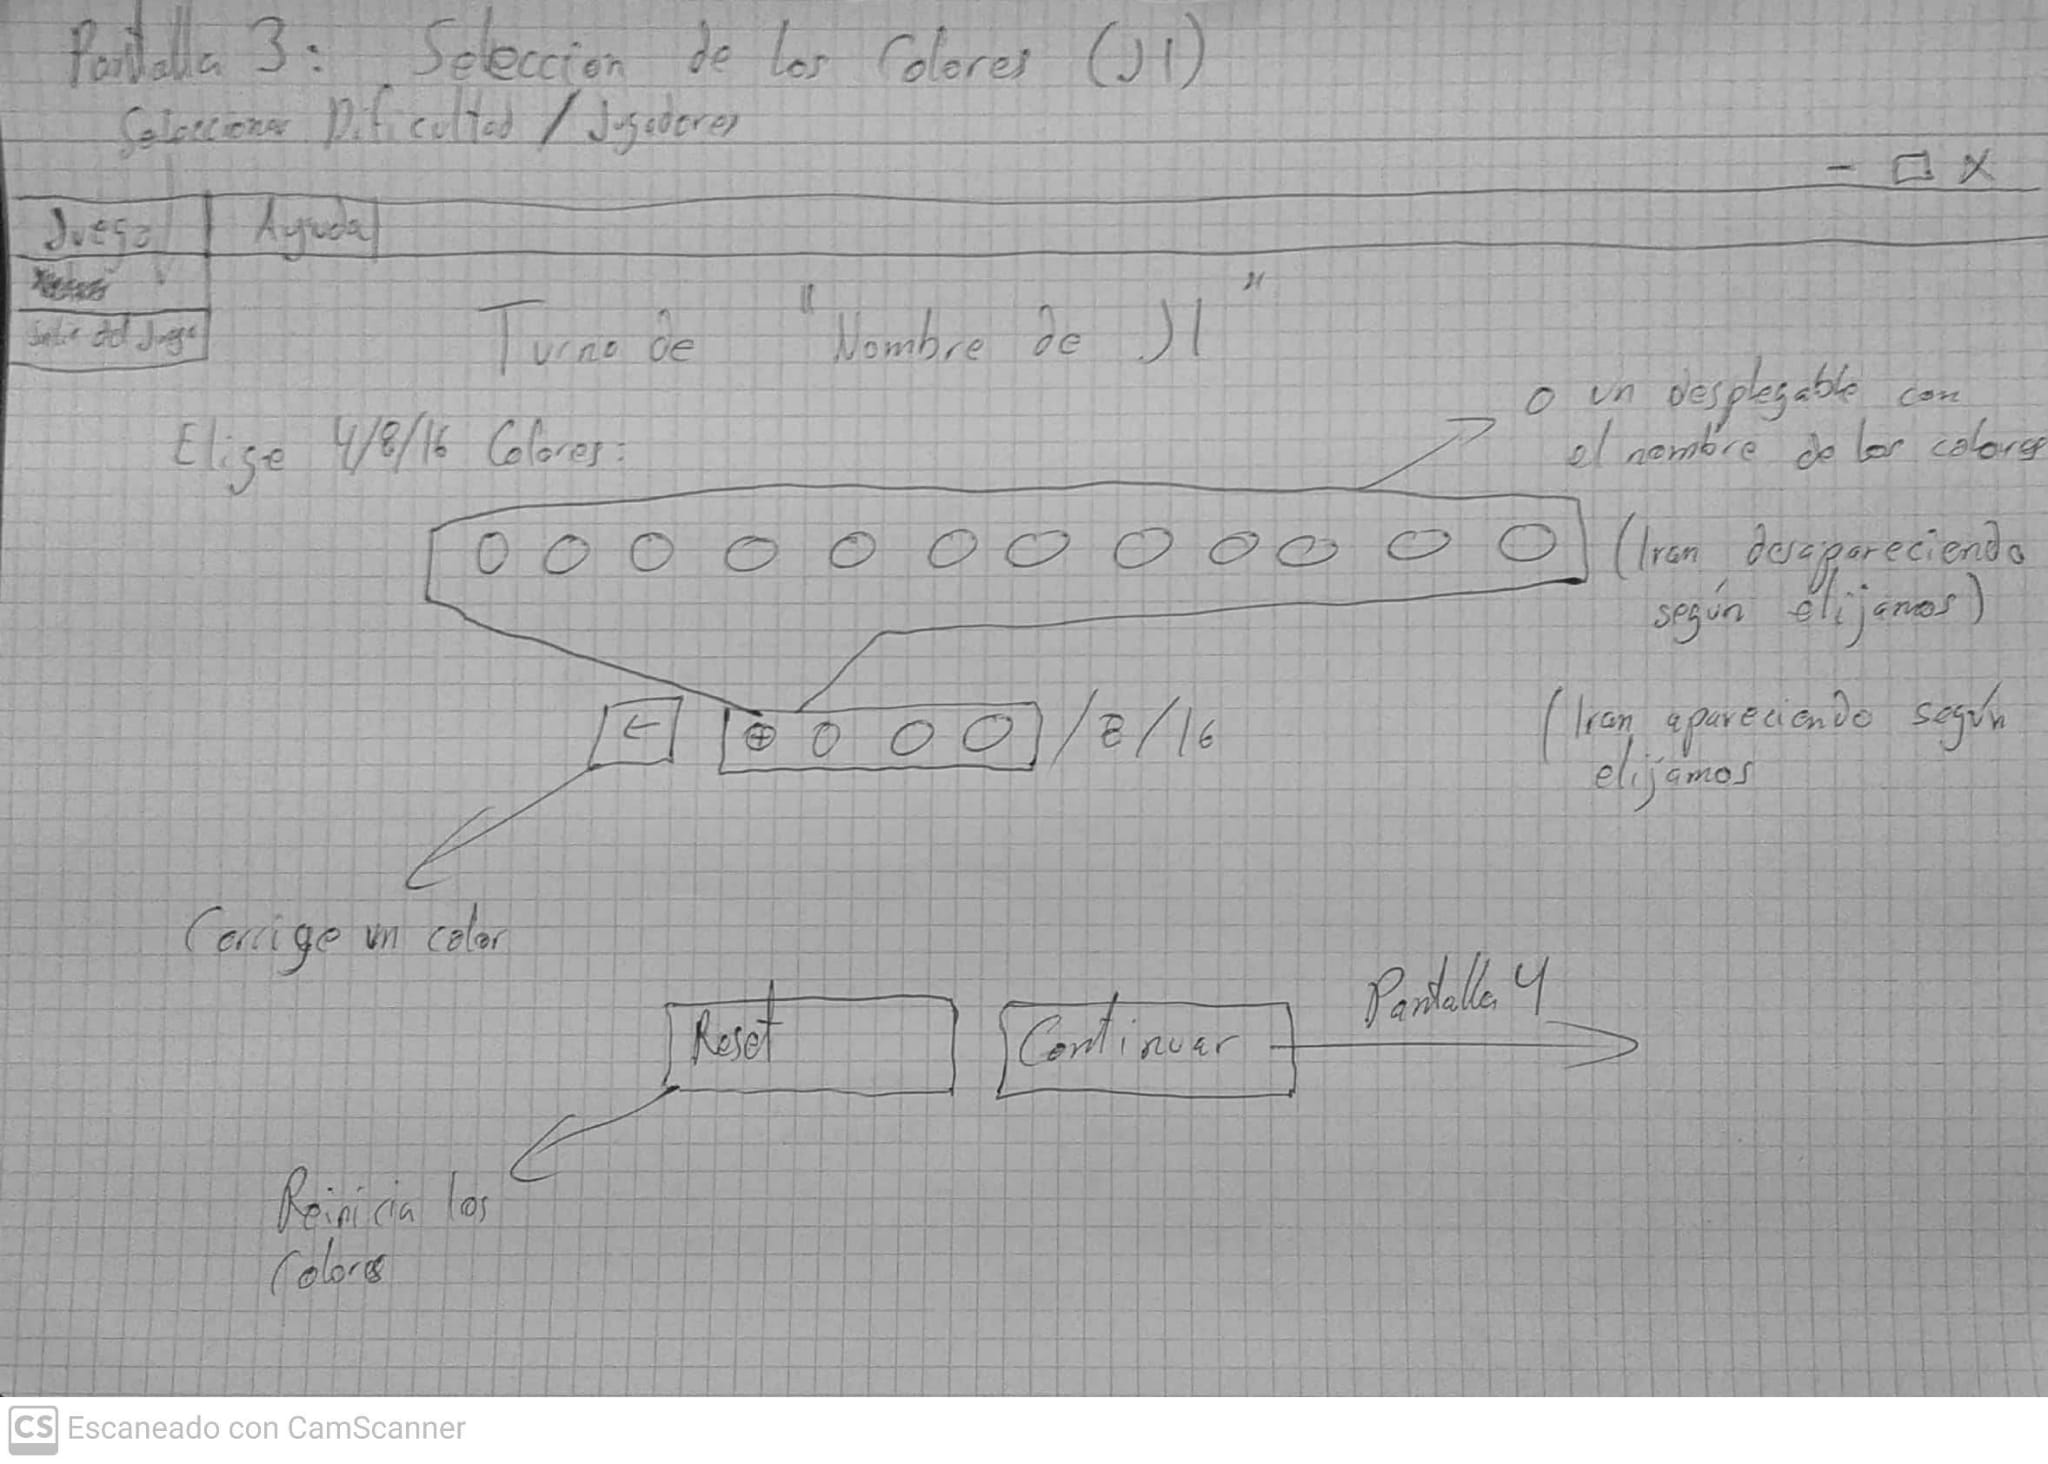 Pantalla 3: Seleccion de los Colores (J1)
Seleccionar Dificultad / Jugadores
- □ X
Juego Ayuda
Salir del Juego
Turno de "Nombre de J1"
O un desplegable con
el nombre de los colores
Elige 4/8/16 Colores:
(Iran desapareciendo
según elijamos)
← + /8/16
(Iran apareciendo según
elijamos
Corrige un color
Pantalla 4
Reset Continuar
Reinicia los
Colores
CS Escaneado con CamScanner